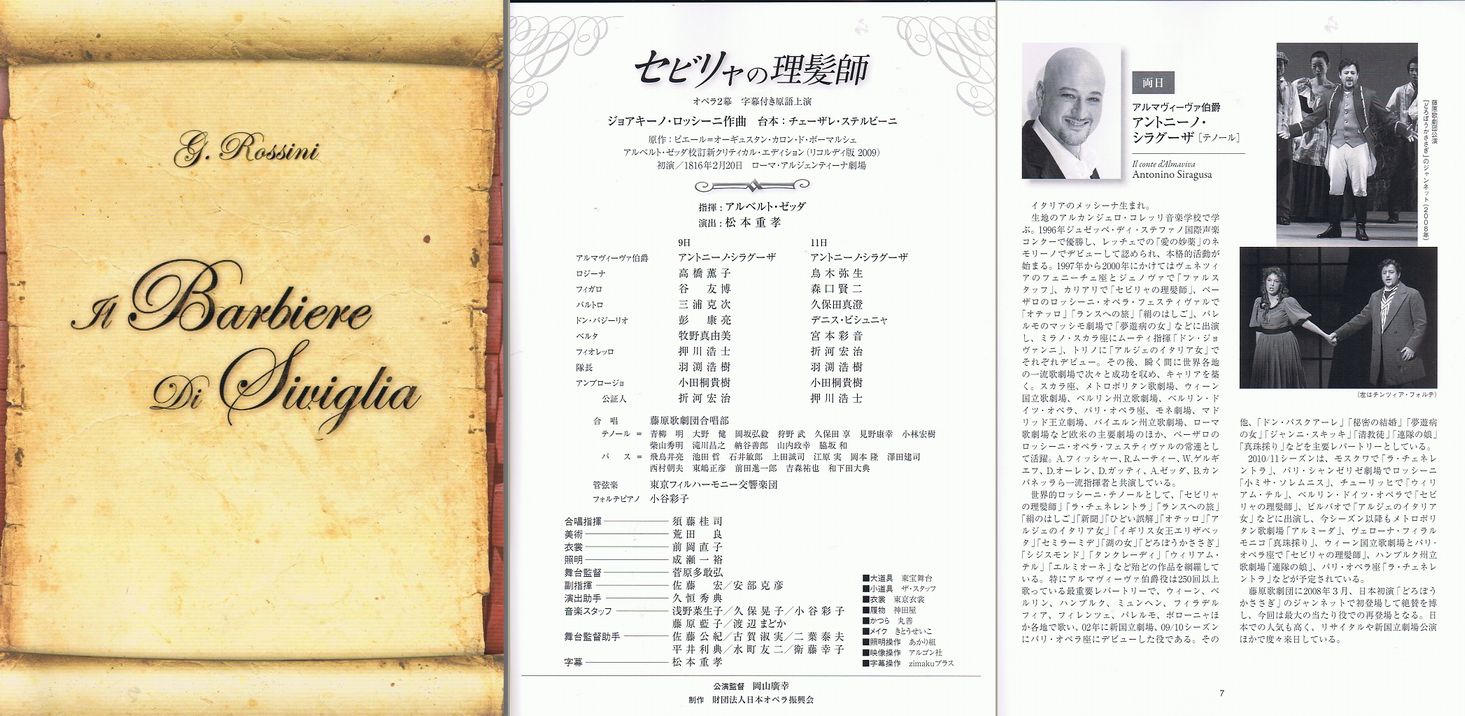 G. Rossini
Il Barbiere
Di Siviglia
セビリャの理髪師
オペラ2幕 字幕付き原語上演
ジョアキーノ・ロッシーニ作曲 台本：チェーザレ・ステルビーニ
原作：ピエール＝オーギュスタン・カロン・ド・ボーマルシェ
アルベルト・ゼッダ校訂新クリティカル・エディション（リコルディ版 2009）
初演／1816年2月20日 ローマ・アルジェンティーナ劇場
指揮：アルベルト・ゼッダ
演出：松本重孝
9日 11日
アルマヴィーヴァ伯爵 アントニーノ・シラグーザ アントニーノ・シラグーザ
ロジーナ 高橋薫子 鳥木弥生
フィガロ 谷 友博 森口賢二
バルトロ 三浦克次 久保田真澄
ドン・バジーリオ 彭 康亮 デニス・ビシュニャ
ベルタ 牧野真由美 宮本彩音
フィオレッロ 押川浩士 折河宏治
隊長 羽渕浩樹 羽渕浩樹
アンブロージョ 小田桐貴樹 小田桐貴樹
公証人 折河宏治 押川浩士
合唱 藤原歌劇団合唱部
テノール＝ 青柳 明 大野 健 岡坂弘毅 狩野 武 久保田 享 見野康幸 小林宏樹
柴山秀明 滝川昌之 納谷善郎 山内政幸 脇坂 和
バス＝ 飛鳥井亮 池田 哲 石井敏郎 上田誠司 江原 実 岡本 隆 澤田建司
西村朝夫 東嶋正彦 前田進一郎 吉森祐也 和下田大典
管弦楽 東京フィルハーモニー交響楽団
フォルテピアノ 小谷彩子
合唱指揮 須藤桂司
美術 荒田 良
衣裳 前岡直子
照明 成瀬一裕
舞台監督 菅原多敢弘
副指揮 佐藤 宏／安部克彦
演出助手 久恒秀典
音楽スタッフ 浅野菜生子／久保晃子／小谷彩子
藤原藍子／渡辺まどか
舞台監督助手 佐藤公紀／古賀淑実／二葉泰夫
平井利典／水町友二／衛藤幸子
字幕 松本重孝
■大道具 東宝舞台
■小道具 ザ・スタッフ
■衣裳 東京衣裳
■履物 神田屋
■かつら 丸善
■メイク きとうせいこ
■照明操作 あかり組
■映像操作 アルゴン社
■字幕操作 zimakuプラス
公演監督 岡山廣幸
制作 財団法人日本オペラ振興会
両日
アルマヴィーヴァ伯爵
アントニーノ・
シラグーザ［テノール］
Il conte d'Almaviva
Antonino Siragusa
イタリアのメッシーナ生まれ。
生地のアルカンジェロ・コレッリ音楽学校で学
ぶ。1996年ジュゼッペ・ディ・ステファノ国際声楽
コンクールで優勝し、レッチェでの「愛の妙薬」のネ
モリーノでデビューして認められ、本格的活動が
始まる。1997年から2000年にかけてはヴェネツィ
アのフェニーチェ座とジェノヴァで「ファルス
タッフ」、カリアリで「セビリャの理髪師」、ペー
ザロのロッシーニ・オペラ・フェスティヴァルで
「オテッロ」「ランスへの旅」「絹のはしご」、パレ
ルモのマッシモ劇場で「夢遊病の女」などに出演
し、ミラノ・スカラ座にムーティ指揮「ドン・ジョ
ヴァンニ」、トリノに「アルジェのイタリア女」で
それぞれデビュー。その後、瞬く間に世界各地
の一流歌劇場で次々と成功を収め、キャリアを築
く。スカラ座、メトロポリタン歌劇場、ウィーン
国立歌劇場、ベルリン州立歌劇場、ベルリン・ド
イツ・オペラ、パリ・オペラ座、モネ劇場、マド
リッド王立劇場、バイエルン州立歌劇場、ローマ
歌劇場など欧米の主要劇場のほか、ペーザロの
ロッシーニ・オペラ・フェスティヴァルの常連とし
て活躍。A.フィッシャー、R.ムーティー、W.ゲルギ
エフ、D.オーレン、D.ガッティ、A.ゼッダ、B.カン
パネッラら一流指揮者と共演している。
世界的ロッシーニ・テノールとして、「セビリャ
の理髪師」「ラ・チェネレントラ」「ランスへの旅」
「絹のはしご」「新聞」「ひどい誤解」「オテッロ」「ア
ルジェのイタリア女」「イギリス女王エリザベッ
タ」「セミラーミデ」「湖の女」「どろぼうかささぎ」
「シジスモンド」「タンクレーディ」「ウィリアム・
テル」「エルミオーネ」など殆どの作品を網羅して
いる。特にアルマヴィーヴァ伯爵役は250回以上
歌っている最重要レパートリーで、ウィーン、ベ
ルリン、ハンブルク、ミュンヘン、フィラデル
フィア、フィレンツェ、パレルモ、ボローニャほ
か各地で歌い、02年に新国立劇場、09/10シーズン
にパリ・オペラ座にデビューした役である。その
藤原歌劇団公演
「どろぼうかささぎ」のジャンネット（2008年）
（左はチンツィア・フォルテ）
他、「ドン・パスクアーレ」「秘密の結婚」「夢遊病
の女」「ジャンニ・スキッキ」「清教徒」「連隊の娘」
「真珠採り」などを主要レパートリーとしている。
2010/11シーズンは、モスクワで「ラ・チェネレ
ントラ」、パリ・シャンゼリゼ劇場でロッシーニ
「小ミサ・ソレムニス」、チューリッヒで「ウィリ
アム・テル」、ベルリン・ドイツ・オペラで「セビ
リャの理髪師」、ビルバオで「アルジェのイタリア
女」などに出演し、今シーズン以降もメトロポリ
タン歌劇場「アルミーダ」、ヴェローナ・フィラル
モニコ「真珠採り」、ウィーン国立歌劇場とパリ・
オペラ座で「セビリャの理髪師」、ハンブルク州立
歌劇場「連隊の娘」、パリ・オペラ座「ラ・チェネレ
ントラ」などが予定されている。
藤原歌劇団に2008年3月、日本初演「どろぼう
かささぎ」のジャンネットで初登場して絶賛を博
し、今回は最大の当たり役での再登場となる。日
本での人気も高く、リサイタルや新国立劇場公演
ほかで度々来日している。
7